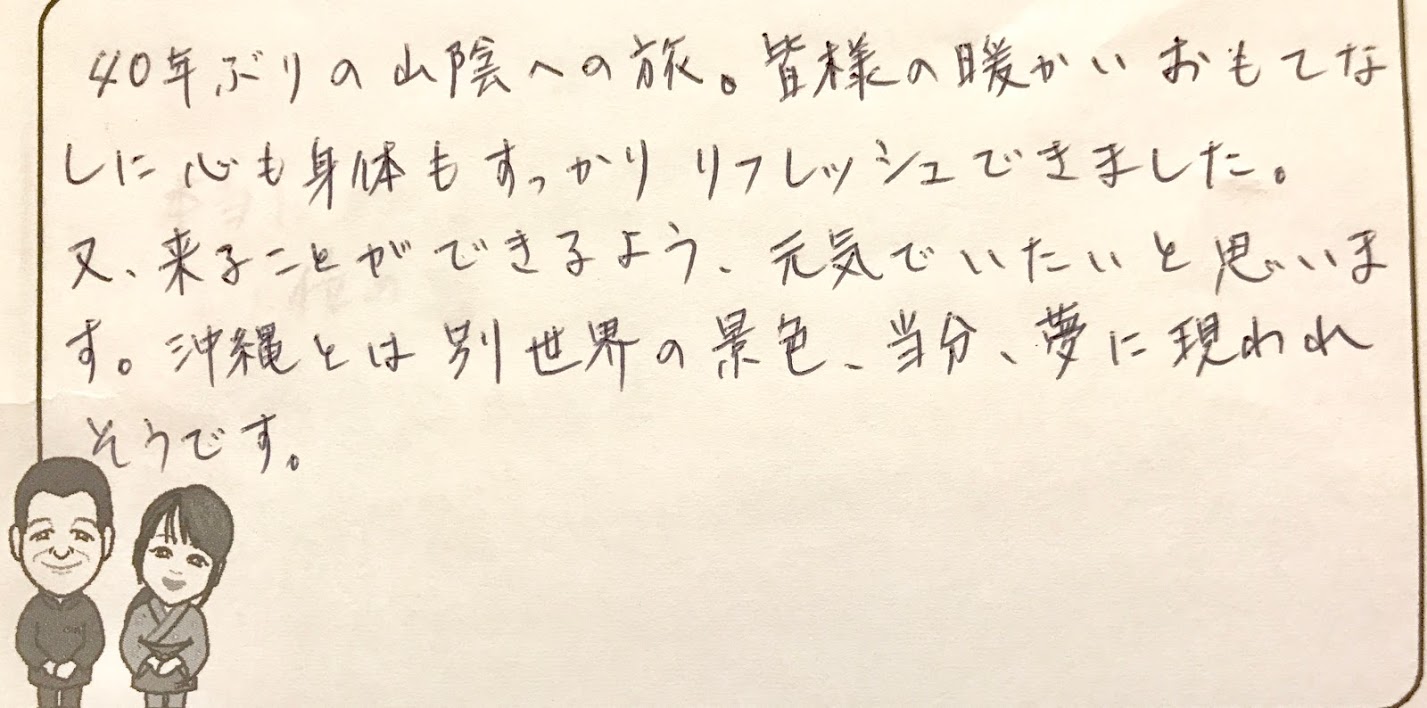 40年ぶりの山陰への旅。皆様の暖かいおもてな
しに心も身体もすっかりリフレッシュできました。
又、来ることができるよう、元気でいたいと思いま
す。沖縄とは別世界の景色、当分、夢に現われ
そうです。